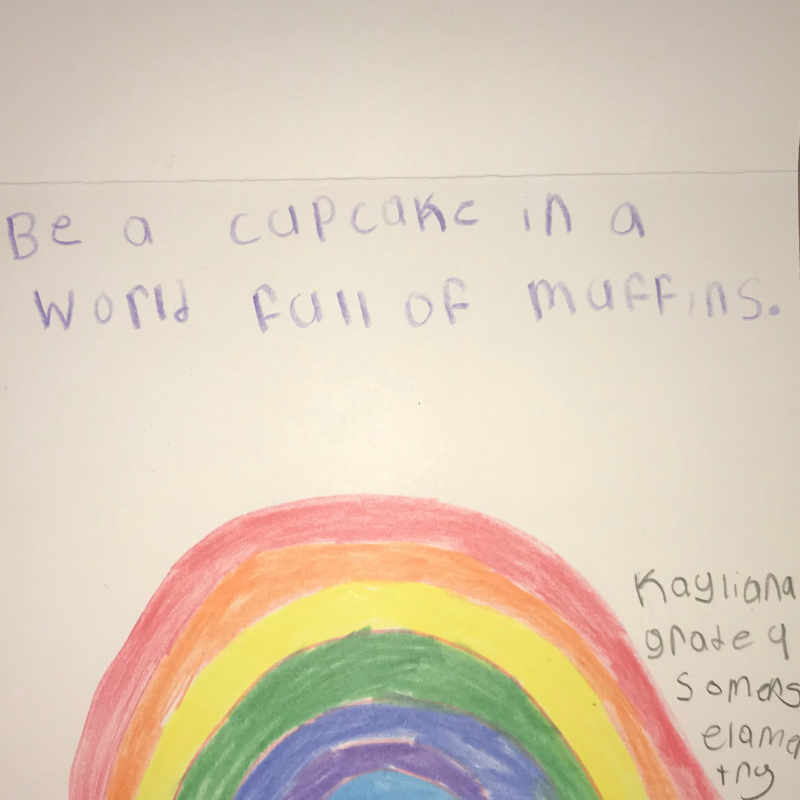 Be a cupcake in a
World full of muffins.
Kayliana
grade 4
Somers
elame
tny